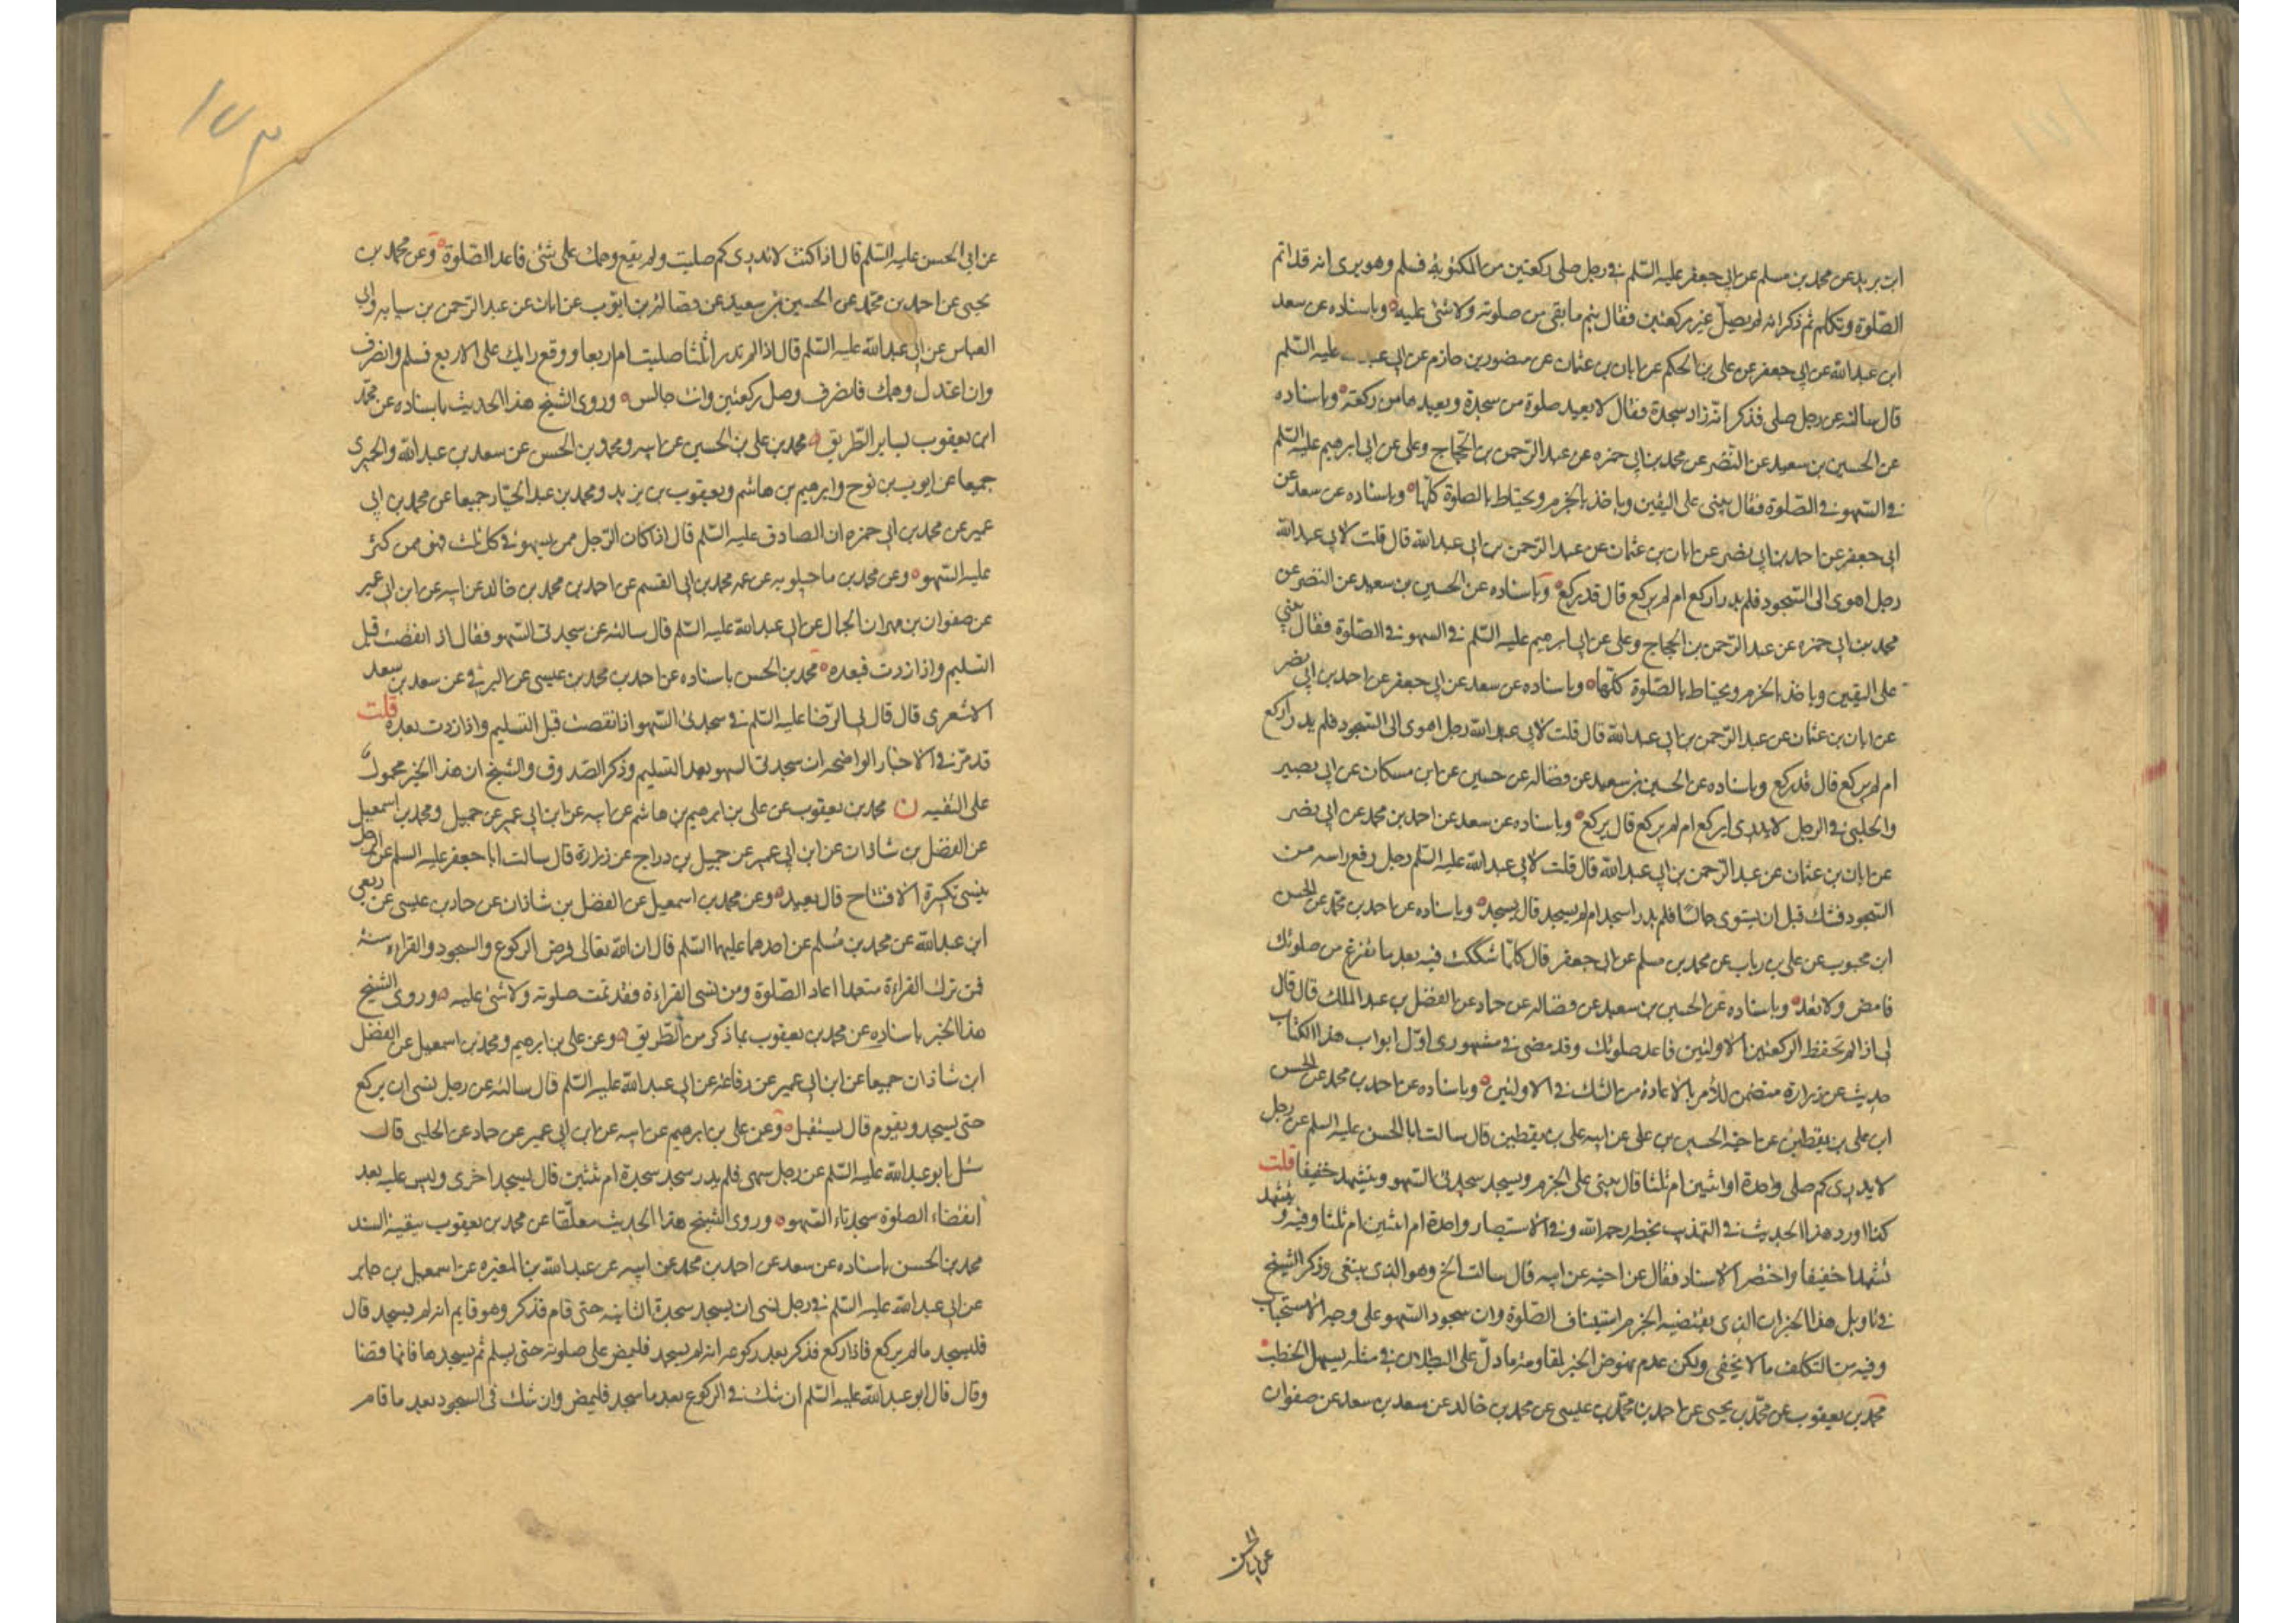 ابن بريد عن محمد بن مسلم عن ابى جعفر عليه السّلم فى رجل صلى ركعتين من المكتوبة فسلم وهو يرى انه قد اتم
الصّلوة وتكلم ثم ذكر انه لم يصلّ غير ركعتين فقال يتم ما بقى من صلوته ولا شئ عليه وباسناده عن سعد
ابن عبد الله عن ابى جعفر عن على بن الحكم عن ابان بن عثمان عن منصور بن حازم عن ابى عبد عليه السّلم
قال سالته عن رجل صلى فذكر انّه زاد سجدة فقال لا يعيد صلوة من سجدة ويعيدها من ركعة وباسناده
عن الحسين بن سعيد عن النّضر عن محمد بن ابى حمزه عن عبد الرّحمن بن الحجاج وعلى عن ابى ابرهيم عليه السّلم
فى السّهو فى الصّلوة فقال يبنى على اليقين وياخذ بالجزم ويحتاط بالصلوة كلّها وباسناده عن سعد عن
ابى جعفر عن احمد بن ابى نصر عن ابان بن عثمان عن عبد الرّحمن بن ابى عبد الله قال قلت لابى عبد الله
رجل اهوى الى السّجود فلم يدر اركع ام لم يركع قال قد ركع وباسناده عن الحسين بن سعيد عن النضر عن
محمد بن ابى حمزه عن عبد الرّحمن بن الحجاج وعلى عن ابى ابرهيم عليه السّلم فى السهو فى الصّلوة فقال يبنى
على اليقين وياخذ بالجزم ويحتاط بالصّلوة كلّها وباسناده عن سعد عن ابى جعفر عن احمد بن ابى نصر
عن ابان بن عثمان عن عبد الرّحمن بن ابى عبد الله قال قلت لابى عبد الله رجل اهوى الى السّجود فلم يدر اركع
ام لم يركع قال قد ركع وباسناده عن الحسين بن سعيد عن فضاله عن حسين عن ابن مسكان عن ابى بصير
والحلبى فى الرجل لا يدرى اركع ام لم يركع قال يركع وباسناده عن سعد عن احمد بن محمد عن ابى نصر
عن ابان بن عثمان عن عبد الرّحمن بن ابى عبد الله قال قلت لابى عبد الله عليه السّلم رجل رفع راسه من
السّجود فشك قبل ان يستوى جالسًا فلم يدر اسجد ام لم يسجد قال يسجد وباسناده عن احمد بن محمّد عن الحسن
ابن محبوب عن على بن رياب عن محمد بن مسلم عن ابى جعفر قال كلّما شككت فيه بعد ما تفرغ من صلوتك
فامض ولا تعد وباسناده عن الحسين بن سعيد عن فضاله عن حماد عن الفضل بن عبد الملك قال قال
لى اذا لم تحفظ الركعتين الاولتين فاعد صلوتك وقد مضى فى مشهورى اوّل ابواب هذا الكتاب
حديث عن زرارة متضمن للامر بالاعادة من الشك فى الاولتين وباسناده عن احمد بن محمد عن الحسن
ابن على بن يقطين عن اخيه الحسين بن على عن ابيه على بن يقطين قال سالت ابا الحسن عليه السلم عن رجل
لا يدرى كم صلى واحدة او اثنتين ام ثلثا قال يبنى على الجزم ويسجد سجدتى السّهو ويتشهد خفيفا قلت
كذا اورد هذا الحديث فى التهذيب بخطه رحمه الله وفى الاستبصار واحدة ام اثنتين ام ثلثا وفيه ويتشهد
تشهدا خفيفا واختصر الاسناد فقال عن اخيه عن ابيه قال سالت الخ وهو الذى ينبغى وذكر الشيخ
فى تاويل هذا الخبر ان الذى يقتضيه الجزم استيناف الصّلوة وان سجود السّهو على وجه الاستحباب
وفيه من التكلف ما لا يخفى ولكن عدم نهوض الخبر لمقاومة ما دلّ على البطلان فى مثله يسهل الخطب
محمّد بن يعقوب عن محمّد بن يحيى عن احمد بن محمّد بن عيسى عن محمد بن خالد عن سعد بن سعد عن صفوان
عن ابى الحسن
١٧٣
عن ابى الحسن عليه السّلم قال اذا كنت لا تدرى كم صليت ولم يقع وهمك على شئ فاعد الصّلوة وعن محمد بن
يحيى عن احمد بن محمّد عن الحسين بن سعيد عن فضالة بن ايوب عن ابان عن عبد الرّحمن بن سيابه وابى
العباس عن ابى عبد الله عليه السّلم قال اذا لم تدر اثلثا صليت ام اربعا ووقع رايك على الاربع فسلم وانصرف
وان اعتدل وهمك فانصرف وصل ركعتين وانت جالس وروى الشيخ هذا الحديث باسناده عن محمّد
ابن يعقوب بساير الطّريق محمد بن على بن الحسين عن ابيه ومحمد بن الحسن عن سعد بن عبد الله والحميرى
جميعا عن ايوب بن نوح وابرهيم بن هاشم ويعقوب بن يزيد ومحمد بن عبد الجبّار جميعا عن محمد بن ابى
عمير عن محمد بن ابى حمزه ان الصادق عليه السّلم قال اذا كان الرّجل ممن يسهو فى كل ثلث فهو ممن كثر
عليه السّهو وعن محمد بن ماجيلويه عن عمه محمد بن ابى القسم عن احمد بن محمد بن خالد عن ابيه عن ابن ابى عمير
عن صفوان بن مهران الجمال عن ابى عبد الله عليه السّلم قال سالته عن سجدتى السّهو فقال اذا نقصت قبل
التسليم واذا زدت فبعده محمد بن الحسن باسناده عن احمد بن محمد بن عيسى عن البرقى عن سعد بن سعد
الاشعرى قال قال لى الرّضا عليه السّلم فى سجدتى السّهو اذا نقصت قبل التسليم واذا زدت بعده قلت
قد مرّ فى الاخبار الواضحه ان سجدتى السهو بعد التسليم وذكر الصّدوق والشيخ ان هذا الخبر محمول
على التقيه ن محمد بن يعقوب عن على بن ابرهيم بن هاشم عن ابيه عن ابن ابى عمير عن جميل ومحمد بن اسمعيل
عن الفضل بن شاذان عن ابن ابى عمير عن جميل بن دراج عن زرارة قال سالت ابا جعفر عليه السلم عن الرجل
ينسى تكبيرة الافتتاح قال يعيد وعن محمد بن اسمعيل عن الفضل بن شاذان عن حماد بن عيسى عن ربعى
ابن عبد الله عن محمد بن مسلم عن احدهما عليهما السّلم قال ان الله تعالى فرض الركوع والسجود والقراءة سنة
فمن ترك القراءة متعمدا اعاد الصّلوة ومن نسى القراءة فقد تمت صلوته ولا شئ عليه وروى الشيخ
هذا الخبر باسناده عن محمد بن يعقوب بما ذكر من الطّريق وعن على بن ابرهيم ومحمد بن اسمعيل عن الفضل
ابن شاذان جميعا عن ابن ابى عمير عن رفاعة عن ابى عبد الله عليه السّلم قال سالته عن رجل نسى ان يركع
حتى يسجد ويقوم قال يستقبل وعن على بن ابرهيم عن ابيه عن ابن ابى عمير عن حماد عن الحلبى قال
سئل ابو عبد الله عليه السّلم عن رجل سهى فلم يدر سجد سجدة ام ثنتين قال يسجد اخرى وليس عليه بعد
انقضاء الصلوة سجدتاء السّهو وروى الشيخ هذا الحديث معلّقا عن محمد بن يعقوب ببقية السند
محمد بن الحسن باسناده عن سعد عن احمد بن محمد عن ابيه عن عبد الله بن المغيره عن اسمعيل بن جابر
عن ابى عبد الله عليه السّلم فى رجل نسى ان يسجد سجدة الثانيه حتى قام فذكر وهو قايم انه لم يسجد قال
فليسجد ما لم يركع فاذا ركع فذكر بعد ركوعه انه لم يسجد فليمض على صلوته حتى يسلم ثم يسجدها فانها قضا
وقال قال ابو عبد الله عليه السّلم ان شك فى الركوع بعد ما سجد فليمض وان شك فى السجود بعد ما قام